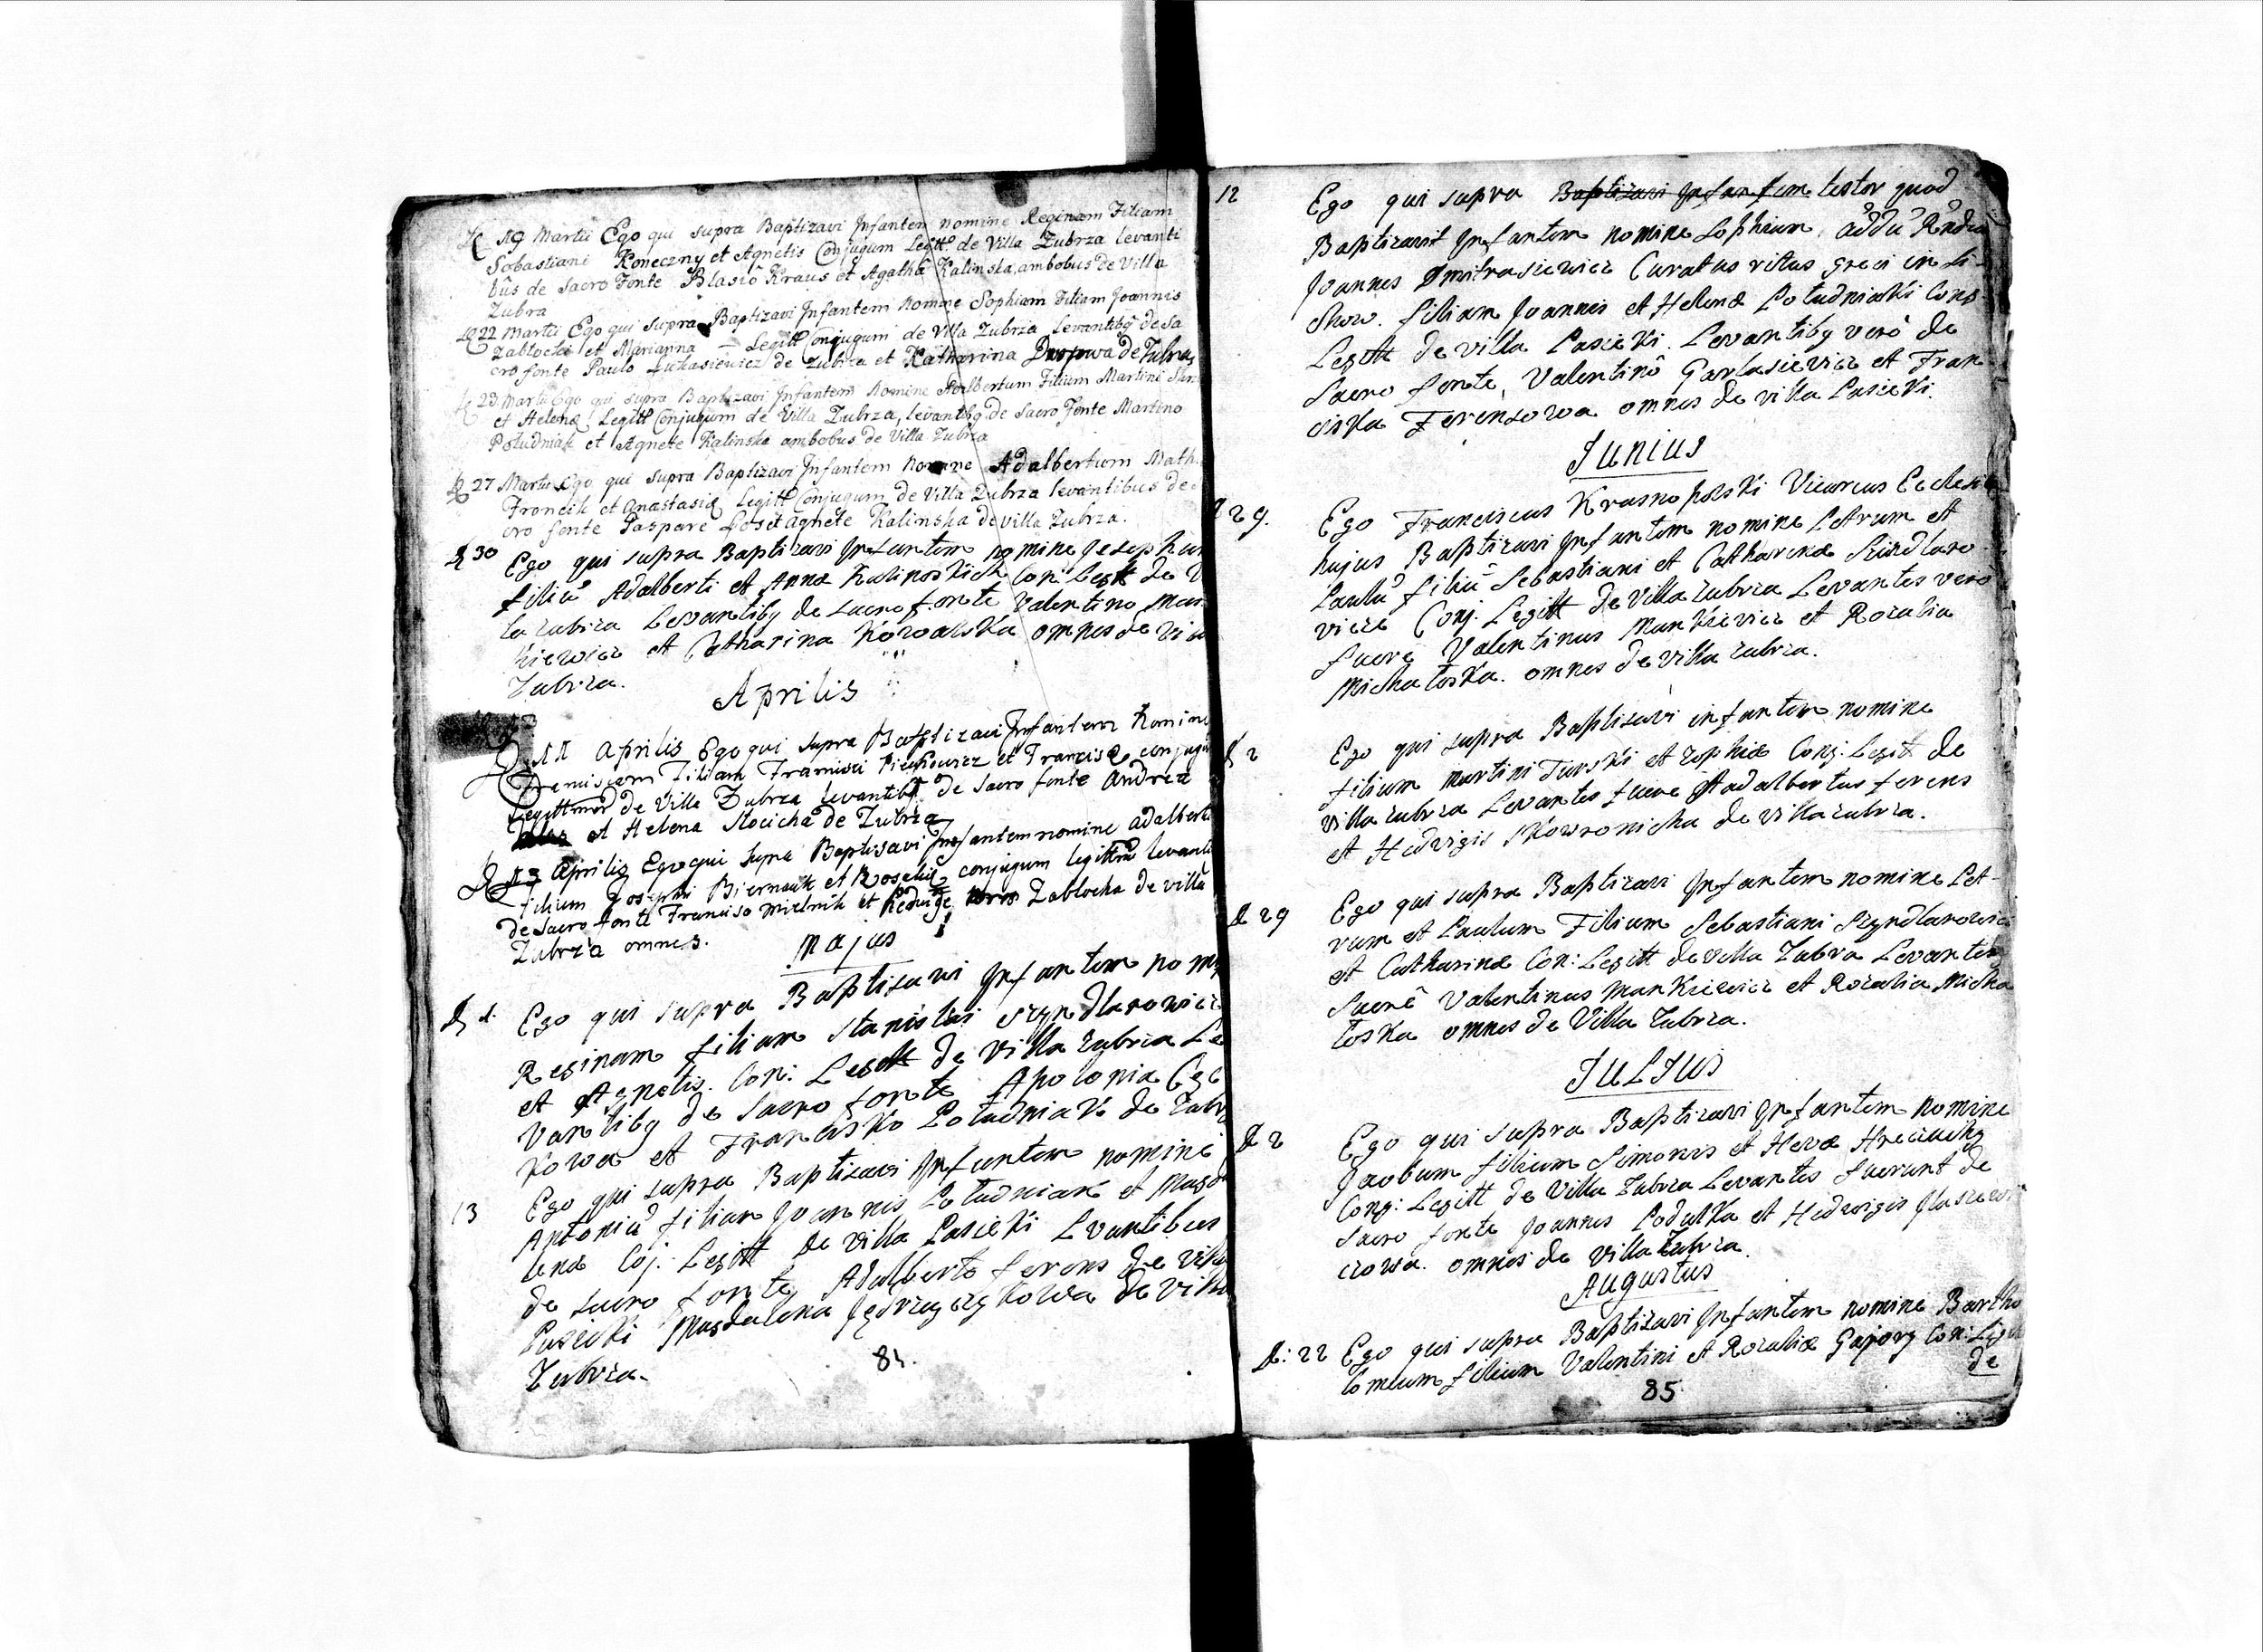 19 Martii Ego qui supra Baptizavi Infantem nomine Reginam Filiam
Sobastiani Koneczny et Agnetis Conjugum Legitt de Villa Zubrza levanti
bus de Sacro Fonte Blasio Kraus et Agatha Kalinska, ambobus de Villa
Zubra
22 Martii Ego qui supra Baptizavi Infantem nomine Sophiam Filiam Joannis
Zablocki et Marianna Legitt Conjugum de Villa Zubrza Levantibg de Sa
cro fonte Paulo Lukasiewicz de Zubrza et Katharina de Zubrza
23 Martii Ego qui supra Baptizavi Infantem Nomine Adalbertum Filium Martini
et Helenæ Legitt Conjugum de Villa Zubrza, levantibg de Sacro Fonte Martino
Poludniak et Agnete Kalinska ambobus de Villa Zubrza
27 Martii Ego qui supra Baptizavi Infantem Nomine Adalbertum Math
Froncik et Anastasiæ Legitt Conjugum de Villa Zubrza levantibus de
cro fonte Gaspare et Agnete Kalinska de villa Zubrza.
30 Ego qui supra Baptizavi Infantem nomine Josephum
filiu Adalberti et Annæ Con: Legitt de V
la Zubrza Levantibg de sacro fonte Valentino Mar
kiewicz et Catharina Kowalska omnes de Vi
Zubrza.
Aprilis
11 Aprilis Ego qui supra Baptizavi Infantem Nomine
Franciscam Filiam Francisci et Franciscæ conjugu
Legittimor de Villa Zubrza levantibg de Sacro fonte Andrea
et Helena de Zubrza
13 Aprilis Ego qui supra Baptisavi Infantem nomine adalbertu
filium Josephi Biernacik et Rosaliæ conjugum legittim levanti
de Sacro fonte Francisco Mielnik et Hedvige Zablocka de villa
Zubrza omnes.
Majus
d 1. Ego qui supra Baptisavi Infantem nomi
Reginam filiam Stanislai Szyndlarowicz
et Agnetis. Con: Legitt de Villa Zubrza Le
vantibg de Sacro fonte Apolonia
kowa et Francisko Poludniak de Zubr
13 Ego qui supra Baptisavi Infantem nomine
Antoniu filium Joannis Poludniak et Magda
lena Coj. Legitt de Villa Pasieki Levantibus
de sacro fonte Adalberto ferens de villa
Pasieki Magdalena de Villa
Zubrza.
84.
12 Ego qui supra Baptizavi Infantem testor quod
Baptizavit Infantem nomine Sophiam
Joannes Dmitrasiewicz Curatus ritus greci in Si-
chow. filiam Joannis et Helenæ Poludniaki Cong
Legitt de villa Pasieki. Levantibg vero de
Sacro fonte, Valentino Garlasiewicz et Fran
ciska Ferensowa omnes de villa Pasieki.
Junius
29. Ego Franciscus Krasnopolski Vicarius Ecclesiæ
hujus Baptizavi Infantem nomine Petrum et
Paulu filiu Sebastiani et Catharinæ Szindlaro
vicze Conj. Legitt de Villa Zubrza Levantes vero
fuere Valentinus Mankievicz et Rozalia
Michaloska. omnes de villa Zubrza.
d 2 Ego qui supra Baptisavi infantem nomine
filium Martini Turski et Zophiæ Conj: Legitt de
villa Zubrza Levantes fuere Aadalbertus ferens
et Hedvigis Skowronicha de Villa Zubrza.
d 29 Ego qui supra Baptizavi Infantem nomine Pet-
rum et Paulum Filium Sebastiani Szyndlarowicz
et Catharinæ Con: Legitt de Villa Zubra Levantes
fuere Valentinus Mankiewicz et Rozalia Micha
loska omnes de Villa Zubrza.
JULIUS
d 2 Ego qui supra Baptizavi Infantem nomine
Jacobum filium Simonis et Hevæ
Conj: Legitt de Villa Zubrza Levantes fuerunt de
Sacro fonte Joannes Podulka et Hedwigis
czowa. omnes de Villa Zubrza.
Augustus
d: 22 Ego qui supra Baptisavi Infantem nomine Bartho
lomeum filium Valentini et Rozaliæ Gajory Con: Legitt
de
85